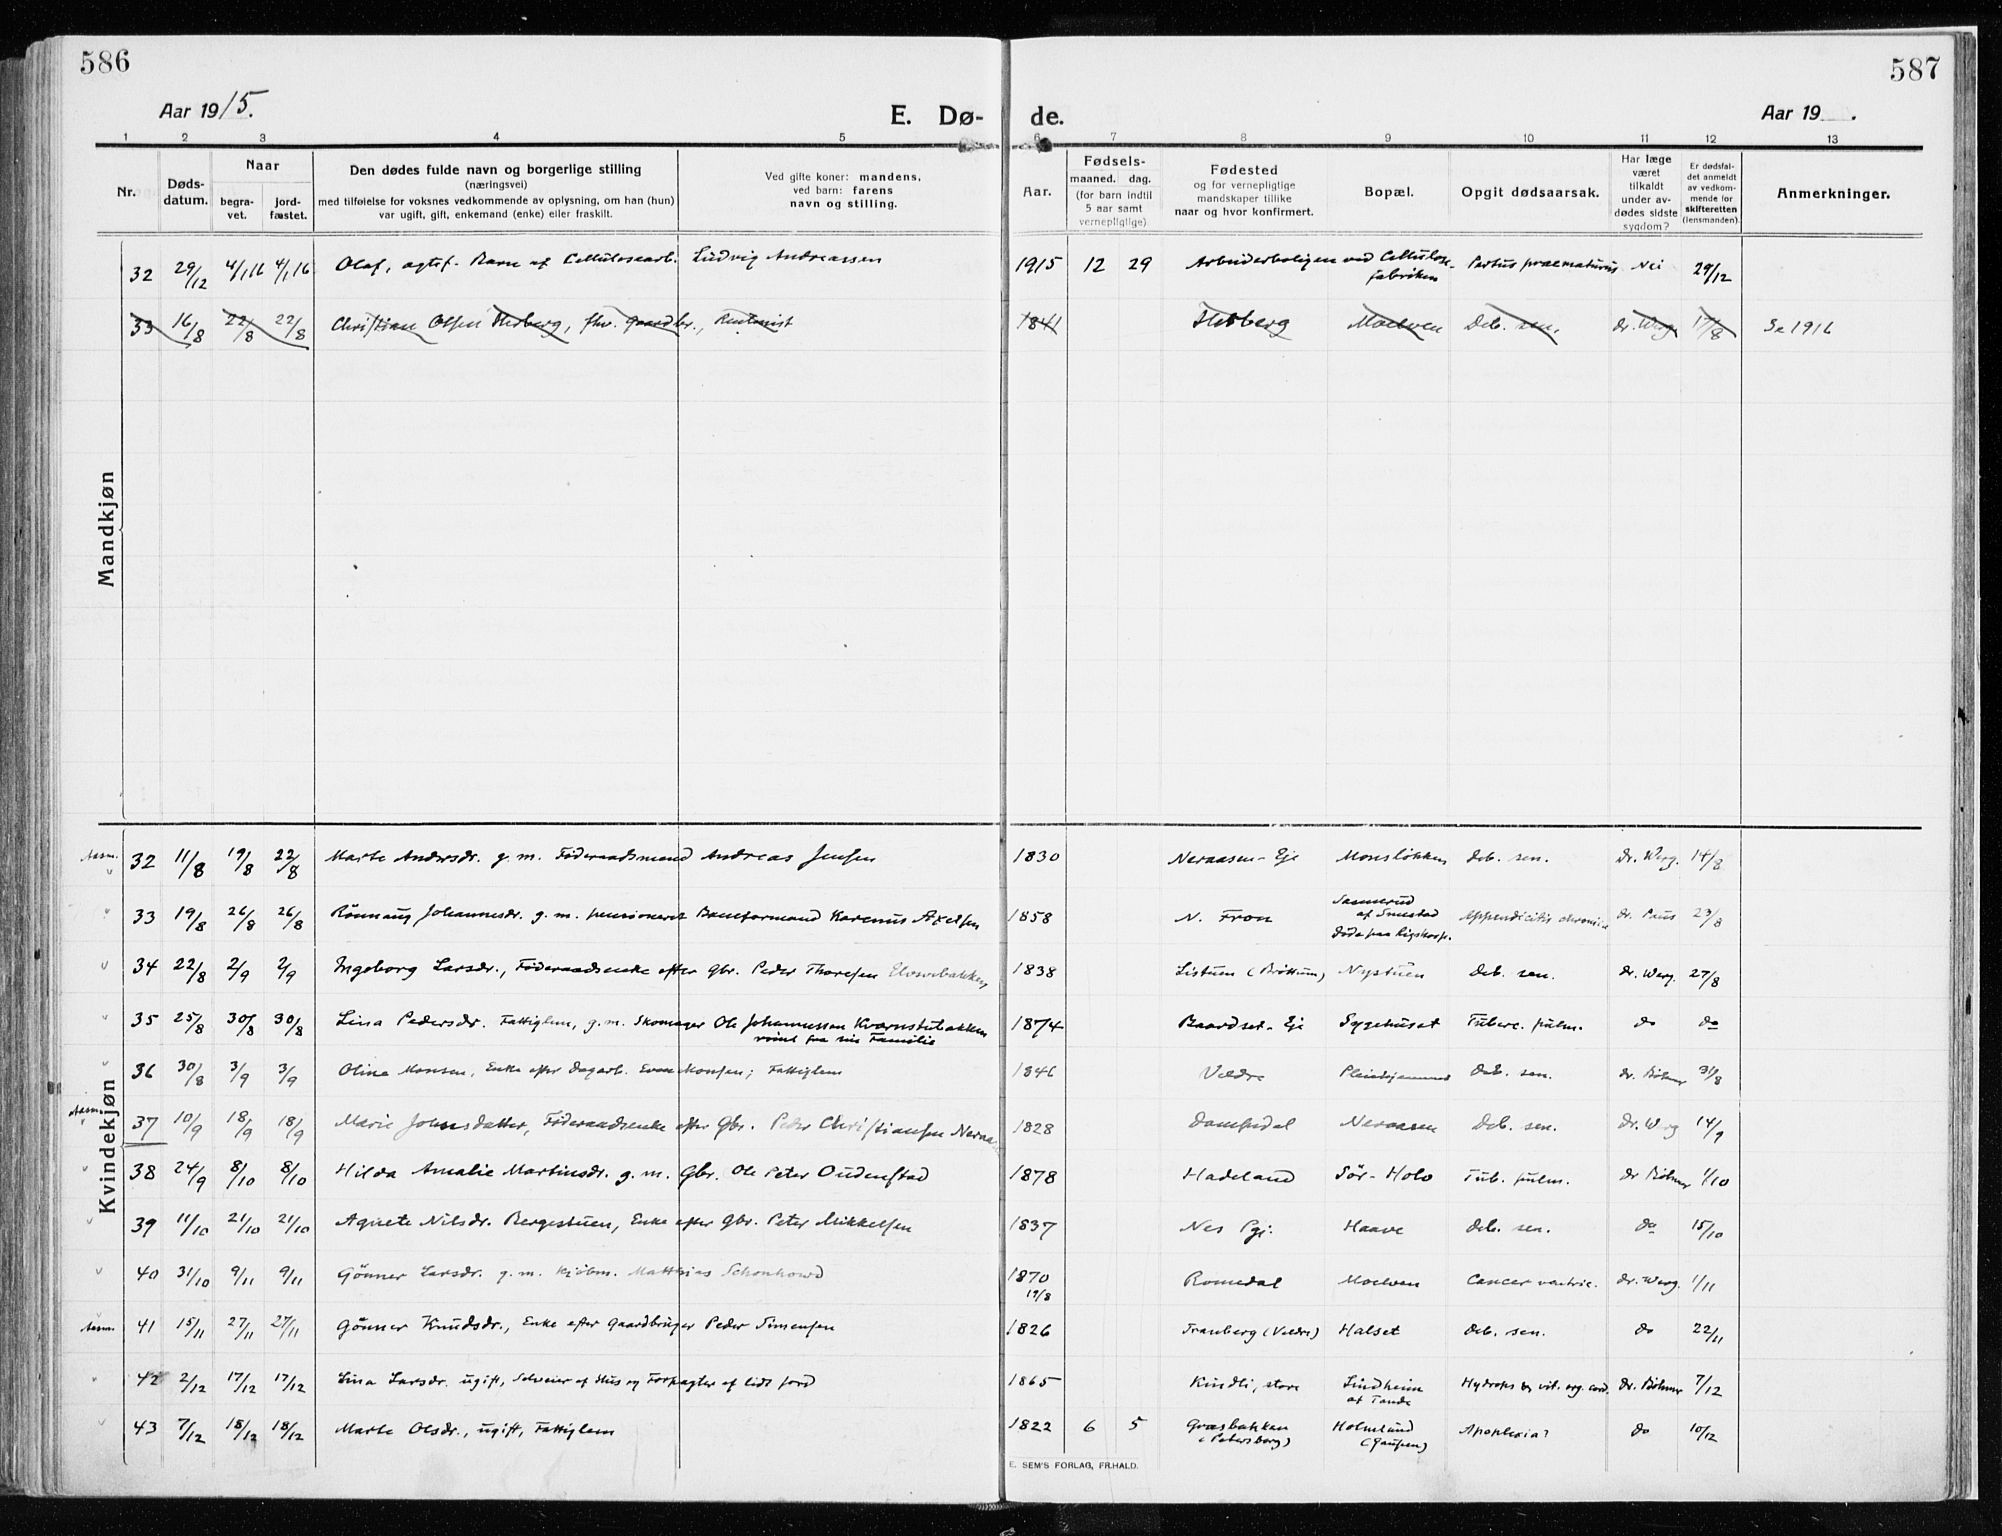 586
587
Aar 1915.
E. Dø-
de.
Aar 19 .
1 2 3 4 5 6 7 8 9 10 11 12 13
Nr.
Døds-
datum.
Naar
begra-
vet.
jord-
fæstet.
Den dødes fulde navn og borgerlige stilling
(næringsvei)
med tilføielse for voksnes vedkommende av oplysning, om han (hun)
var ugift, gift, enkemand (enke) eller fraskilt.
Ved gifte koner: mandens,
ved barn: farens
navn og stilling.
Aar.
Fødsels-
maaned. dag.
(for barn indtil
5 aar samt
vernepligtige)
Fødested
og for vernepligtige
mandskaper tillike
naar og hvor konfirmert.
Bopæl.
Opgit dødsaarsak.
Har læge
været
tilkaldt
under av-
dødes sidste
sygdom?
Er dødsfal-
det anmeldt
av vedkom-
mende for
skifteretten
(lensmanden).
Anmerkninger.
Mandkjøn
32 29/12 4/1 16 4/1 16 Olaf, ægtef. Barn af Cellulosearb. Ludvig Andreassen 1915 12 29 Arbeiderboligen ved Cellulose-
fabriken Partus praematurus Nei 29/12
33 16/8 22/8 22/8 Christian Olsen Stesberg, fhv. Gaardbr., Rentenist 1841 Stesberg Moelven Deb. sen. dr. Werg. 17/8 Se 1916
Kvindekjøn
Aasm. 32 11/8 19/8 22/8 Marte Andersdr. g. m. Føderaadsmand Andreas Jensen 1830 Neraasen-Eje Monsløkken deb. sen. Dr. Werg. 14/8
33 19/8 26/8 26/8 Rønnaug Johannesdr. g. m. pensioneret Baneformand Karenus Axelsen 1858 N. Fron
af Smestad
Døde paa Rigshosp. Appendicitis chronica dr. Paus 23/8
34 22/8 2/9 2/9 Ingeborg Larsdr., Føderaadsenke efter Gbr. Peder Thoresen 1838 Listum (Brøttum) Nystuen Deb. sen. dr. Werg. 27/8
35 25/8 30/8 30/8 Lina Pedersdr. Fattiglem, g. m. Skomager Ole Johannessen Kværnstubakken
rømt fra sin Familie 1874 Baardset-Eje Sygehuset Tuberc. pulm. do do
36 30/8 3/9 3/9 Oline Monsen, Enke efter Dagarb. Even Monsen; Fattiglem 1846 Veldre Pleiehjemmet Deb. sen. dr. Bøhmer 31/8
Aasm. 37 10/9 18/9 18/9 Marie Johnsdatter, Føderaadsenke efter Gbr. Peder Christiansen Neraa 1828 Domsedel Neraasen Deb. sen. Dr. Werg 14/9
38 24/9 8/10 8/10 Hilda Amalie Martinsdr. g. m. Gbr. Ole Peter Oudenstad 1878 Hadeland Sør-Holo Tub. pulm. dr Bøhmer 1/10
39 11/10 21/10 21/10 Agnete Nilsdr. Bergestuen, Enke efter Gbr. Peter Mikkelsen 1837 Nes Pgj. Haave deb. sen. do 15/10
40 31/10 9/11 9/11 Gønner Larsdr. g. m. Kjøbm. Matthias Schonhowd 1870
19/8 Romedal Moelven Cancer ventric. dr. Werg. 1/11
Aasm. 41 15/11 27/11 27/11 Gønner Knudsdr., Enke efter Gaardbruger Peder Simensen 1826 Tranberg (Veldre) Halset deb. sen. do 22/11
42 2/12 17/12 17/12 Lina Larsdr. ugift, Selveier af Hus og Forpagter af lidt jord 1865 Kindli, store Lindheim
af Tande Hydrops by vit. org. cord. Dr. Bøhmer 7/12
43 7/12 18/12 18/12 Marte Olsdr., ugift, Fattiglem 1822 6 5 Græsbakken
(Petersborg) Holmlund
(Gaupen) Apoplexia? do 10/12
E. SEM'S FORLAG, FR.HALD.